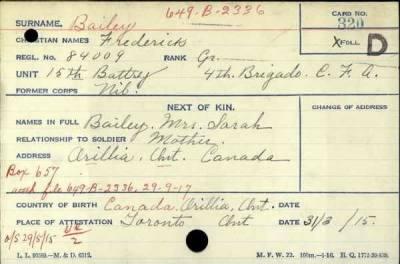 649-B-2336
SURNAME. Bailey CARD NO. 320
CHRISTIAN NAMES Frederick XFOLL. D
REGL. NO. 84009 RANK Gr.
UNIT 15th Battry 4th. Brigade. C. F. A.
FORMER CORPS Nil.
NEXT OF KIN. CHANGE OF ADDRESS
NAMES IN FULL Bailey. Mrs. Sarah
RELATIONSHIP TO SOLDIER Mother
ADDRESS Orillia, Ont. Canada
Box 657
file 649-B-2336, 29-9-17
COUNTRY OF BIRTH Canada. Orillia, Ont. DATE
PLACE OF ATTESTATION Toronto Ont 31/3/15.
O/S 29/5/15 2
L. L. 93599.—M. & D. 6312. M. F. W. 22. 100m.—4-16. H. Q. 1772-39-839.